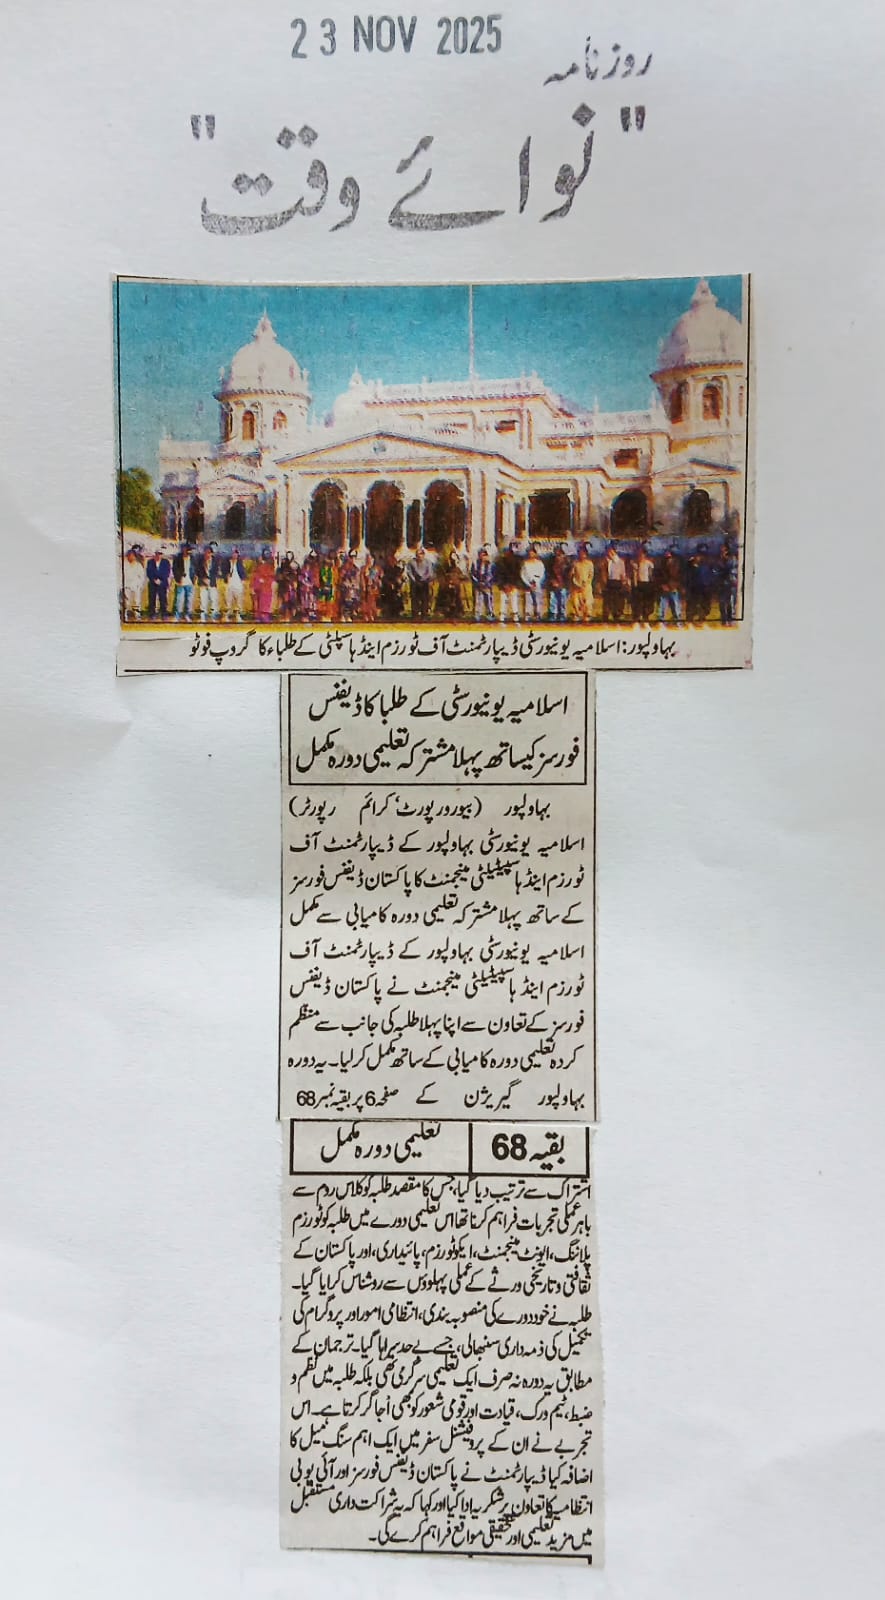 23 NOV 2025
روزنامہ
"نوائے وقت"
بہاولپور: اسلامیہ یونیورسٹی ڈیپارٹمنٹ آف ٹورزم اینڈ ہاسپٹلٹی کے طلباء کا گروپ فوٹو
اسلامیہ یونیورسٹی کے طلبا کا ڈیفنس
فورسز کیساتھ پہلا مشترکہ تعلیمی دورہ مکمل
بہاولپور (بیورورپورٹ، کرائم رپورٹر)
اسلامیہ یونیورسٹی بہاولپور کے ڈیپارٹمنٹ آف
ٹورزم اینڈ ہاسپیٹیلیٹی مینجمنٹ کا پاکستان ڈیفنس فورسز
کے ساتھ پہلا مشترکہ تعلیمی دورہ کامیابی سے مکمل
اسلامیہ یونیورسٹی بہاولپور کے ڈیپارٹمنٹ آف
ٹورزم اینڈ ہاسپیٹیلیٹی مینجمنٹ نے پاکستان ڈیفنس
فورسز کے تعاون سے اپنا پہلا طلبہ کی جانب سے منظم
کردہ تعلیمی دورہ کامیابی کے ساتھ مکمل کرلیا۔ یہ دورہ
بہاولپور گیریژن کے صفحہ 6 پر بقیہ نمبر 68
بقیہ 68
تعلیمی دورہ مکمل
اشتراک سے ترتیب دیا گیا، جس کا مقصد طلبہ کو کلاس روم سے
باہر عملی تجربات فراہم کرنا تھا اس تعلیمی دورے میں طلبہ کو ٹورزم
پلاننگ، ایونٹ مینجمنٹ، ایکو ٹورزم، پائیداری، اور پاکستان کے
ثقافتی و تاریخی ورثے کے عملی پہلوؤں سے روشناس کرایا گیا۔
طلبہ نے خود دورے کی منصوبہ بندی، انتظامی امور اور پروگرام کی
تکمیل کی ذمہ داری سنبھالی، جسے بے حد سراہا گیا۔ ترجمان کے
مطابق یہ دورہ نہ صرف ایک تعلیمی سرگرمی تھی بلکہ طلبہ میں نظم و
ضبط، ٹیم ورک، قیادت اور قومی شعور کو بھی اُجاگر کرتا ہے۔ اس
تجربے نے ان کے پروفیشنل سفر میں ایک اہم سنگ میل کا
اضافہ کیا ڈیپارٹمنٹ نے پاکستان ڈیفنس فورسز اور آئی یو بی
انتظامیہ کا تعاون پر شکریہ ادا کیا اور کہا کہ یہ شراکت داری مستقبل
میں مزید تعلیمی اور تحقیقی مواقع فراہم کرے گی۔